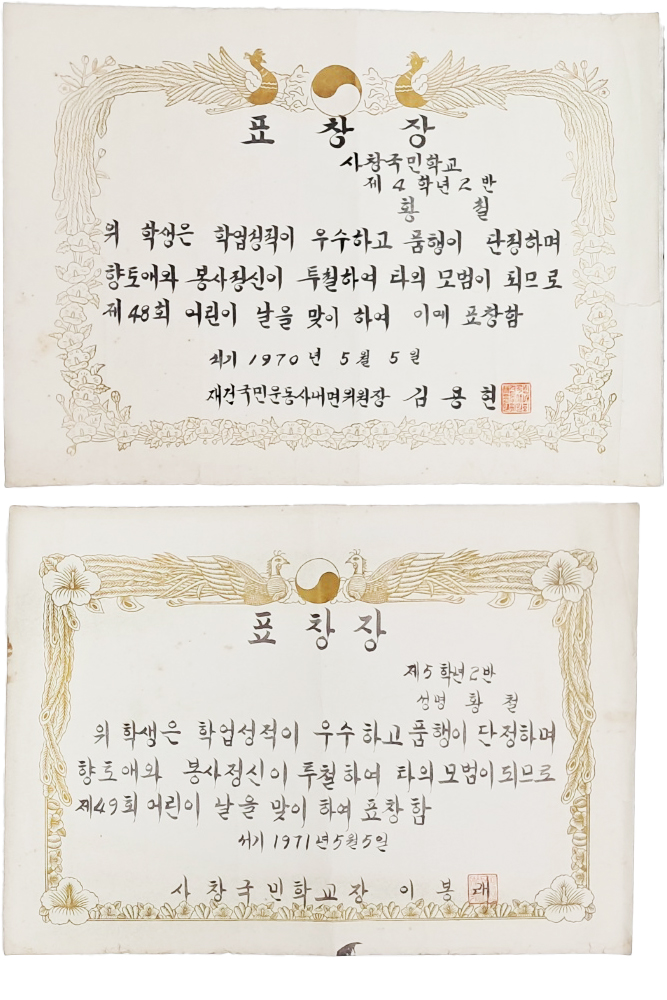 표 창 장
사창국민학교
제 4 학년 2 반
황 철
위 학생은 학업성적이 우수하고 품행이 단정하며
향토애와 봉사정신이 투철하여 타의 모범이 되므로
제 48회 어린이 날을 맞이 하여 이에 표창함
서기 1970 년 5 월 5 일
재건국민운동사내면위원장 김 용 현
표 창 장
제 5 학년 2 반
성명 황 철
위 학생은 학업성적이 우수하고 품행이 단정하며
향토애와 봉사정신이 투철하여 타의 모범이 되므로
제49회 어린이 날을 맞이 하여 표창함
서기 1971년 5월 5일
사 창 국 민 학 교 장 이 봉 래